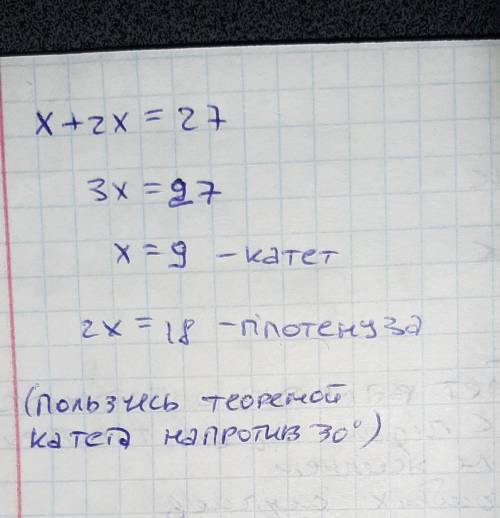 x+2x=27
3x=27
x=9 – катет
2x=18 – гіпотенуза
(пользись теоремой
катета напротив 30°)